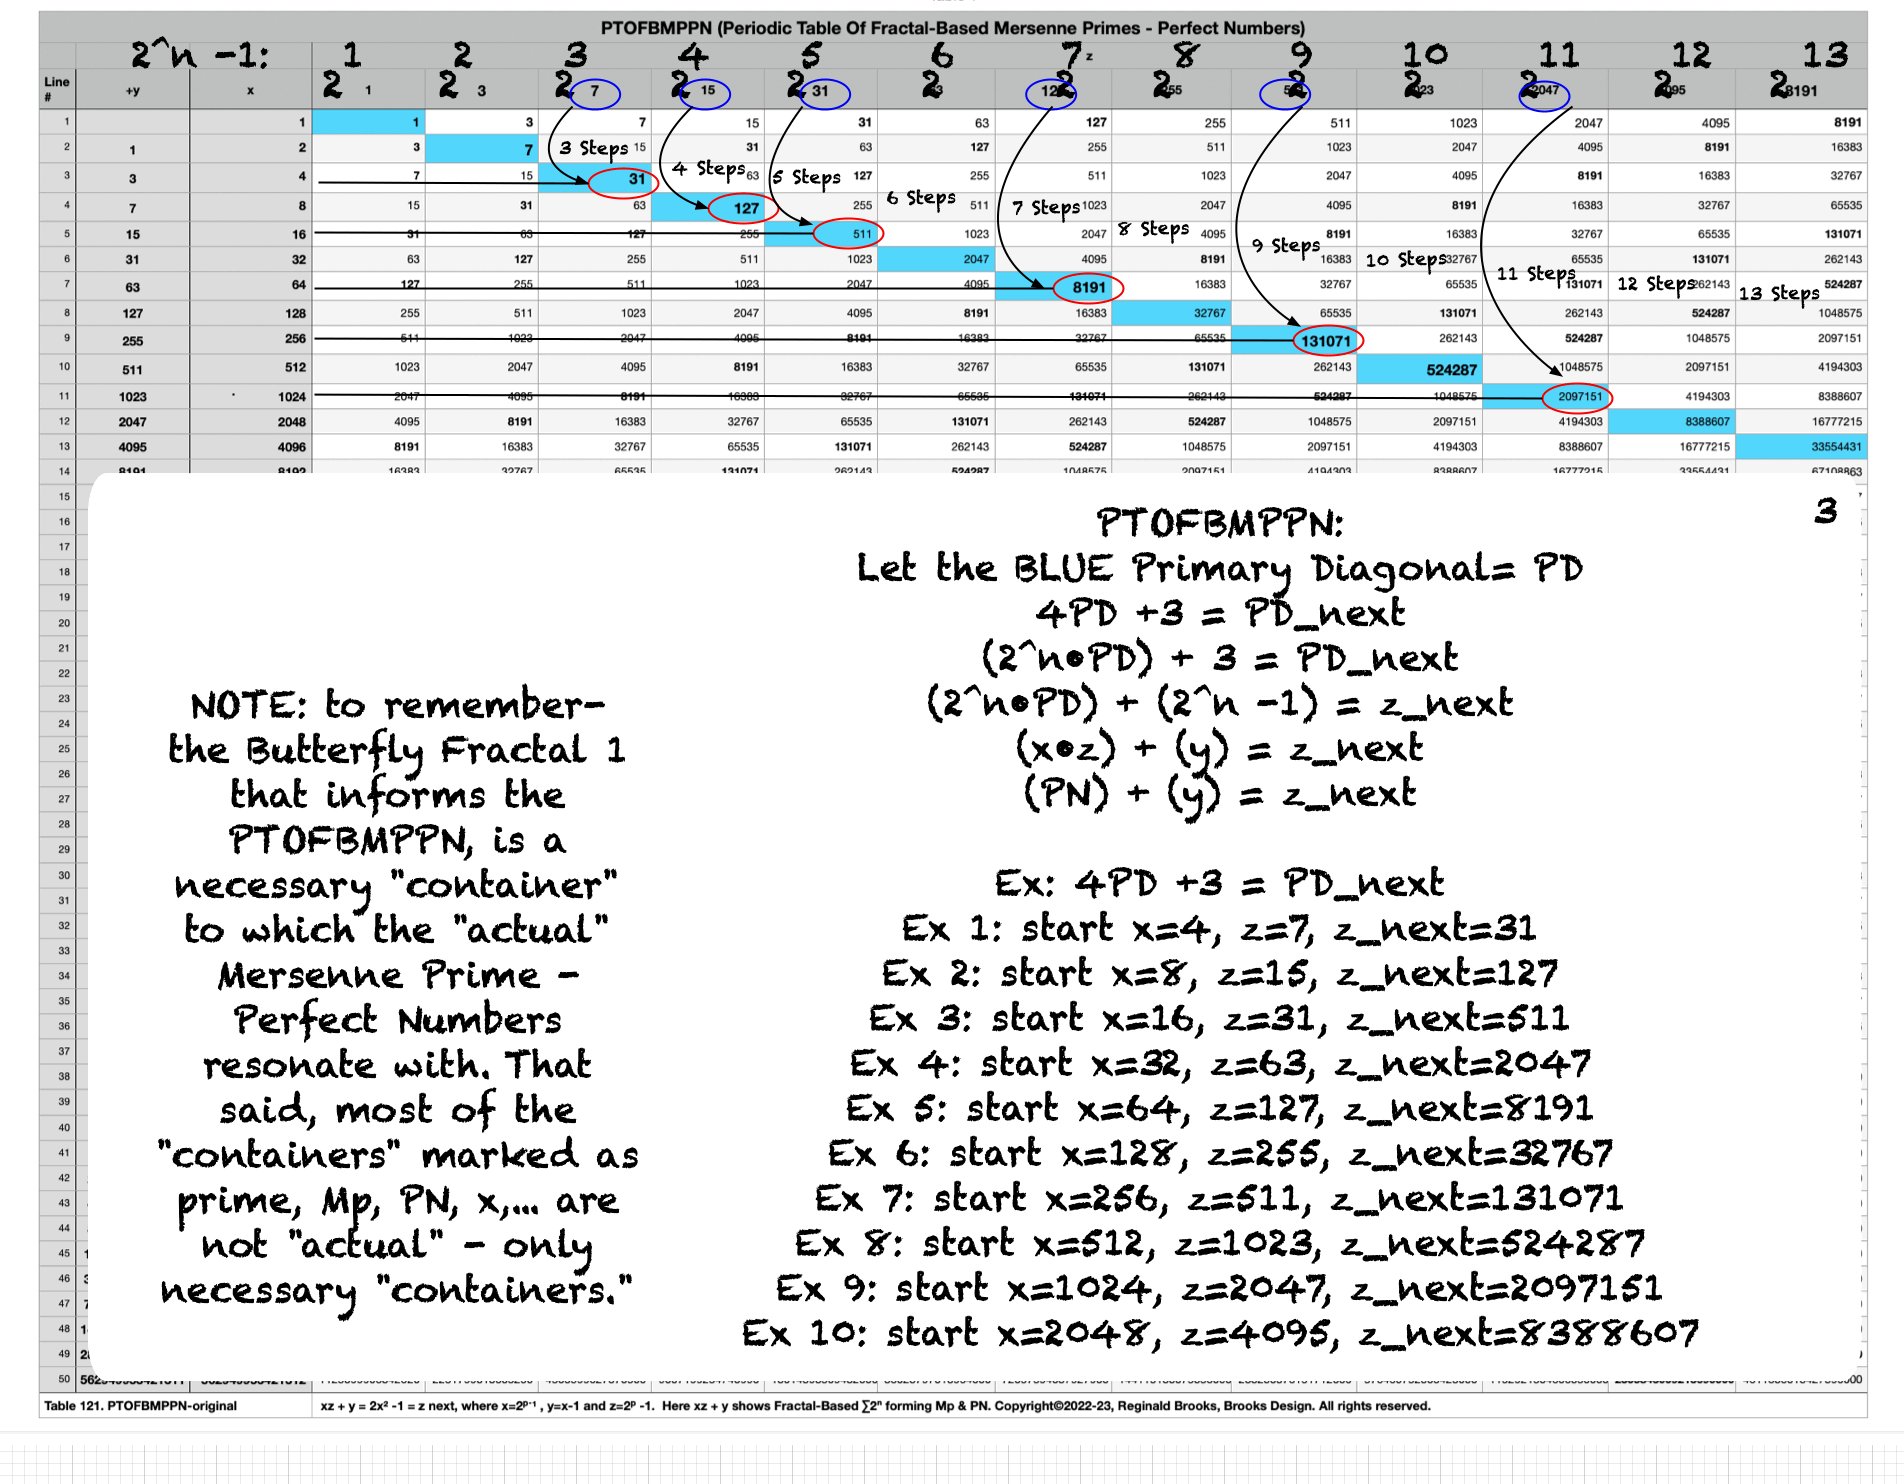 PTOFBMPPN (Periodic Table Of Fractal-Based Mersenne Primes - Perfect Numbers)
2^n -1: 1 2 3 4 5 6 7 z 8 9 10 11 12 13
Line # +y x 2 1 2 3 2 7 2 15 2 31 2 2 2 2 2 2 2047 2 2 8191
1 1 1 3 7 15 31 63 127 255 511 1023 2047 4095 8191
2 1 2 3 7 15 31 63 127 255 511 1023 2047 4095 8191 16383
3 3 4 7 15 31 63 127 255 511 1023 2047 4095 8191 16383 32767
4 7 8 15 31 63 127 255 511 1023 2047 4095 8191 16383 32767 65535
5 15 16 31 63 127 255 511 1023 2047 4095 8191 16383 32767 65535 131071
6 31 32 63 127 255 511 1023 2047 4095 8191 16383 32767 65535 131071 262143
7 63 64 127 255 511 1023 2047 4095 8191 16383 32767 65535 131071 262143 524287
8 127 128 255 511 1023 2047 4095 8191 16383 32767 65535 131071 262143 524287 1048575
9 255 256 511 1023 2047 4095 8191 16383 32767 65535 131071 262143 524287 1048575 2097151
10 511 512 1023 2047 4095 8191 16383 32767 65535 131071 262143 524287 1048575 2097151 4194303
11 1023 1024 2047 4095 8191 16383 32767 65535 131071 262143 524287 1048575 2097151 4194303 8388607
12 2047 2048 4095 8191 16383 32767 65535 131071 262143 524287 1048575 2097151 4194303 8388607 16777215
13 4095 4096 8191 16383 32767 65535 131071 262143 524287 1048575 2097151 4194303 8388607 16777215 33554431
14 8191 8192 16383 32767 65535 131071 262143 524287 1048575 2097151 4194303 8388607 16777215 33554431 67108863
3 Steps
4 Steps
5 Steps
6 Steps
7 Steps
8 Steps
9 Steps
10 Steps
11 Steps
12 Steps
13 Steps
15
16
17
18
19
20
21
22
23
24
25
26
27
28
29
30
31
32
33
34
35
36
37
38
39
40
41
42
43
44
45
46
47
48
49
50
3
PTOFBMPPN:
Let the BLUE Primary Diagonal= PD
4PD +3 = PD_next
(2^n•PD) + 3 = PD_next
(2^n•PD) + (2^n -1) = z_next
(x•z) + (y) = z_next
(PN) + (y) = z_next
Ex: 4PD +3 = PD_next
Ex 1: start x=4, z=7, z_next=31
Ex 2: start x=8, z=15, z_next=127
Ex 3: start x=16, z=31, z_next=511
Ex 4: start x=32, z=63, z_next=2047
Ex 5: start x=64, z=127, z_next=8191
Ex 6: start x=128, z=255, z_next=32767
Ex 7: start x=256, z=511, z_next=131071
Ex 8: start x=512, z=1023, z_next=524287
Ex 9: start x=1024, z=2047, z_next=2097151
Ex 10: start x=2048, z=4095, z_next=8388607
NOTE: to remember-
the Butterfly Fractal 1
that informs the
PTOFBMPPN, is a
necessary "container"
to which the "actual"
Mersenne Prime -
Perfect Numbers
resonate with. That
said, most of the
"containers" marked as
prime, Mp, PN, x,... are
not "actual" - only
necessary "containers."
Table 121. PTOFBMPPN-original
xz + y = 2x² -1 = z next, where x=2ᵖ⁻¹ , y=x-1 and z=2ᵖ -1. Here xz + y shows Fractal-Based ∑2ⁿ forming Mp & PN. Copyright©2022-23, Reginald Brooks, Brooks Design. All rights reserved.